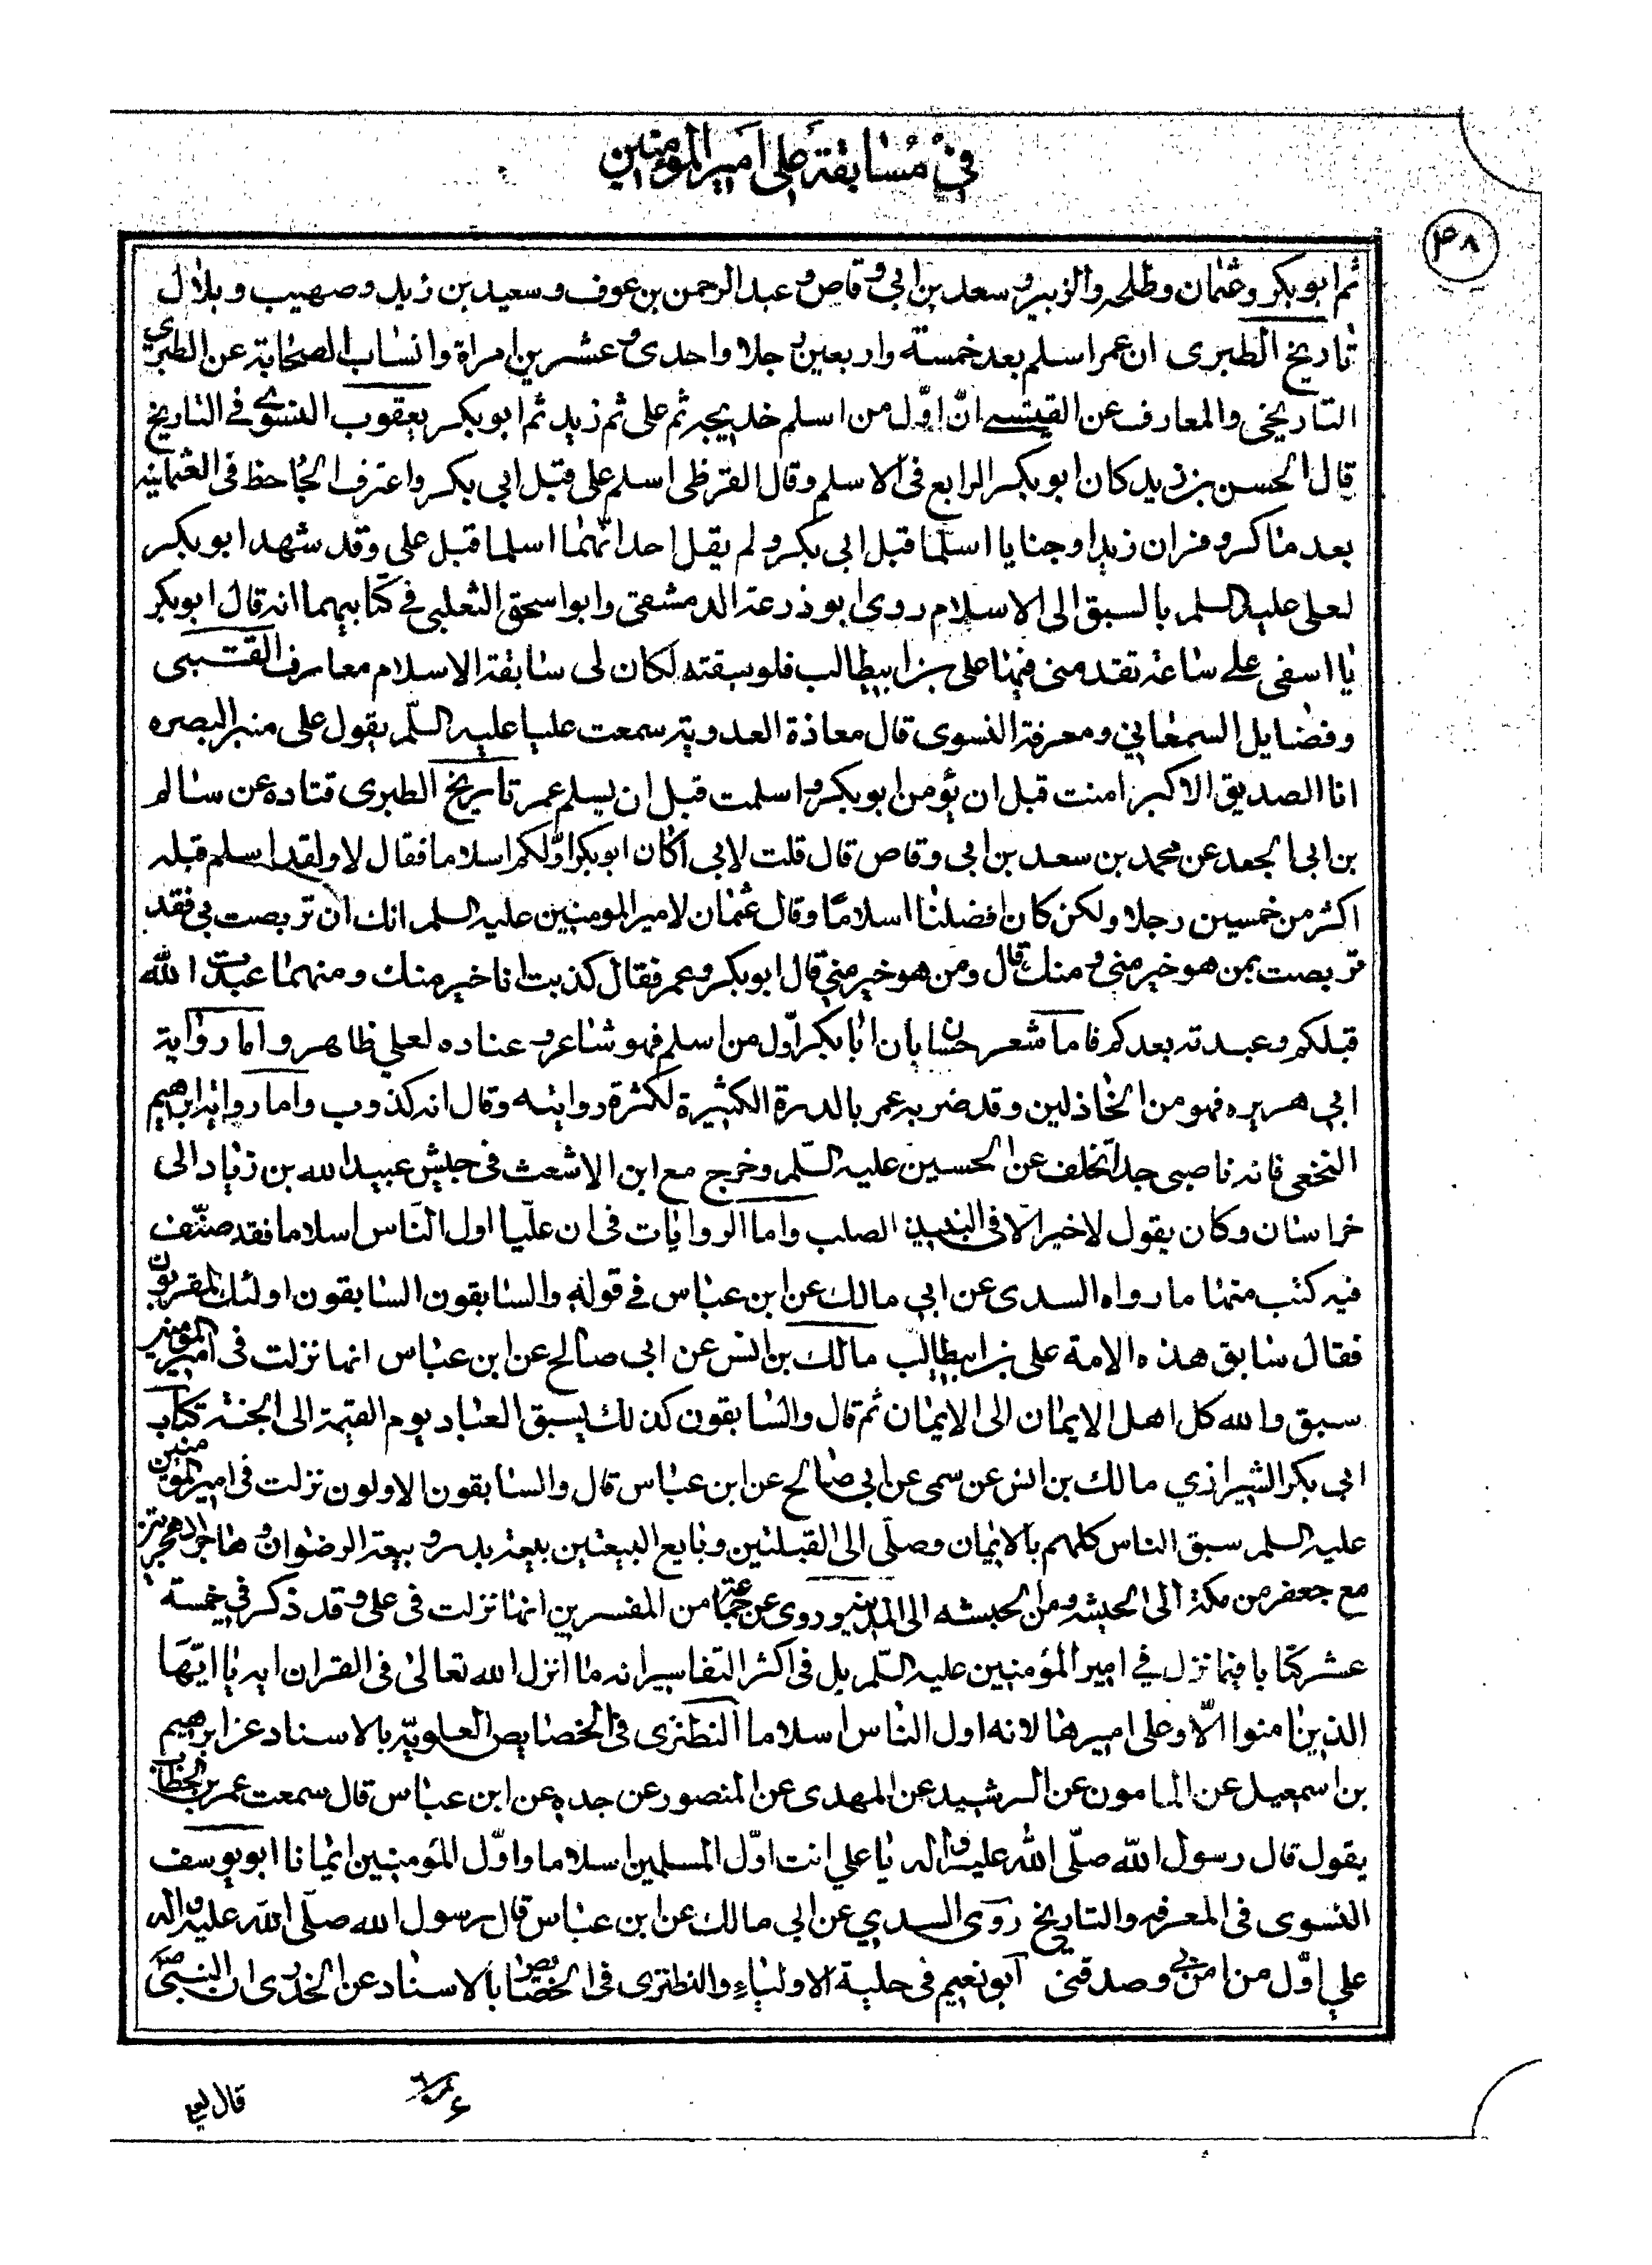 في مسابقة على امير المؤمنين
٤٨
ثم ابو بكر وعثمان وطلحه والزبير وسعد بن ابي وقاص وعبد الرحمن بن عوف وسعيد بن زيد وصهيب وبلال
تاريخ الطبرى ان عمر اسلم بعد خمسة واربعين رجلا واحدى وعشرين امراة وانساب الصحابة عن الطبري
التاريخي والمعارف عن القتيبي انّ اوّل من اسلم خديجه ثم على ثم زيد ثم ابو بكر يعقوب النسوى في التاريخ
قال الحسن بن زيد كان ابو بكر الرابع في الاسلم وقال القرظى اسلم على قبل ابى بكر واعترف الجاحظ فى العثمانيه
بعد ما كر وفر ان زيدا وجنابا اسلما قبل ابى بكر ولم يقل احد انهما اسلما قبل على وقد شهد ابو بكر
لعلى عليه السلم بالسبق الى الاسلام روى ابو ذرعة الدمشقى وابو اسحق الثعلبى في كتابيهما انه قال ابو بكر
يا اسفى على ساعة تقدمنى فيها على بن ابيطالب فلو سبقته لكان لى سابقة الاسلام معارف القتيبى
وفضايل السمعاني ومعرفة النسوى قال معاذة العدوية سمعت عليا عليه السلم يقول على منبر البصره
انا الصديق الاكبر امنت قبل ان يؤمن ابو بكر واسلمت قبل ان يسلم عمر تاريخ الطبرى قتاده عن سالم
بن ابى الجعد عن محمد بن سعد بن ابى وقاص قال قلت لابى اكان ابو بكر اوّلكم اسلاما فقال لا ولقد اسلم قبله
اكثر من خمسين رجلا ولكن كان افضلنا اسلامًا وقال عثمان لامير المومنين عليه السلم انك ان تربصت بي فقد
تربصت بمن هو خير مني ومنك قال ومن هو خير مني قال ابو بكر وعمر فقال كذبت انا خير منك ومنهما عبدت الله
قبلكم وعبدته بعدكم فاما شعر حسان بان ابا بكر اوّل من اسلم فهو شاعر وعناده لعلي ظاهر واما رواية
ابى هريره فهو من الخاذلين وقد ضربه عمر بالدرة الكثيرة لكثرة روايته وقال انه كذوب واما رواية ابرهيم
النخعى فانه ناصبى جدا تخلف عن الحسين عليه السلم وخرج مع ابن الاشعث فى جيش عبيد الله بن زياد الى
خراسان وكان يقول لا خير الا فى النبيذ الصلب واما الروايات فى ان عليّا اول الناس اسلاما فقد صنّف
فيه كتب منها ما رواه السدى عن ابي مالك عن ابن عباس في قوله والسابقون السابقون اولئك المقربون
فقال سابق هذه الامة على بن ابيطالب مالك بن انس عن ابى صالح عن ابن عباس انها نزلت فى امير المؤمنين
سبق والله كل اهل الايمان الى الايمان ثم قال والسابقون كذلك يسبق العباد يوم القيمة الى الجنة كتاب
ابى بكر الشيرازي مالك بن انس عن سمى عن ابى صالح عن ابن عباس قال والسابقون الاولون نزلت فى امير المومنين
عليه السلم سبق الناس كلهم بالايمان وصلّى الى القبلتين وبايع البيعتين بيعة بدر وبيعة الرضوان وهاجر الهجرتين
مع جعفر من مكة الى الحبشه ومن الحبشه الى المدينه وروى عن جماعة من المفسرين انها نزلت فى على وقد ذكر في خمسة
عشر كتابا فيما نزل في امير المؤمنين عليه السّلم بل فى اكثر التفاسير انه ما انزل الله تعالى فى القران اية يا ايّها
الذين امنوا الّا وعلى اميرها لانه اول الناس اسلاما النطنزى فى الخصايص العلويّة بالاسناد عن ابرهيم
بن اسمعيل عن المامون عن الرشيد عن المهدى عن المنصور عن جده عن ابن عباس قال سمعت عمر بن الخطاب
يقول قال رسول الله صلّى الله عليه واله يا علي انت اوّل المسلمين اسلاما واوّل المؤمنين ايمانا ابو يوسف
النسوى فى المعرفه والتاريخ روى السدي عن ابى مالك عن ابن عباس قال رسول الله صلّى الله عليه واله
علي اوّل من امن بي وصدقنى ابو نعيم فى حلية الاولياء والنطنزى فى الخصايص بالاسناد عن الخدرى ان النبى ص
قال لعلي